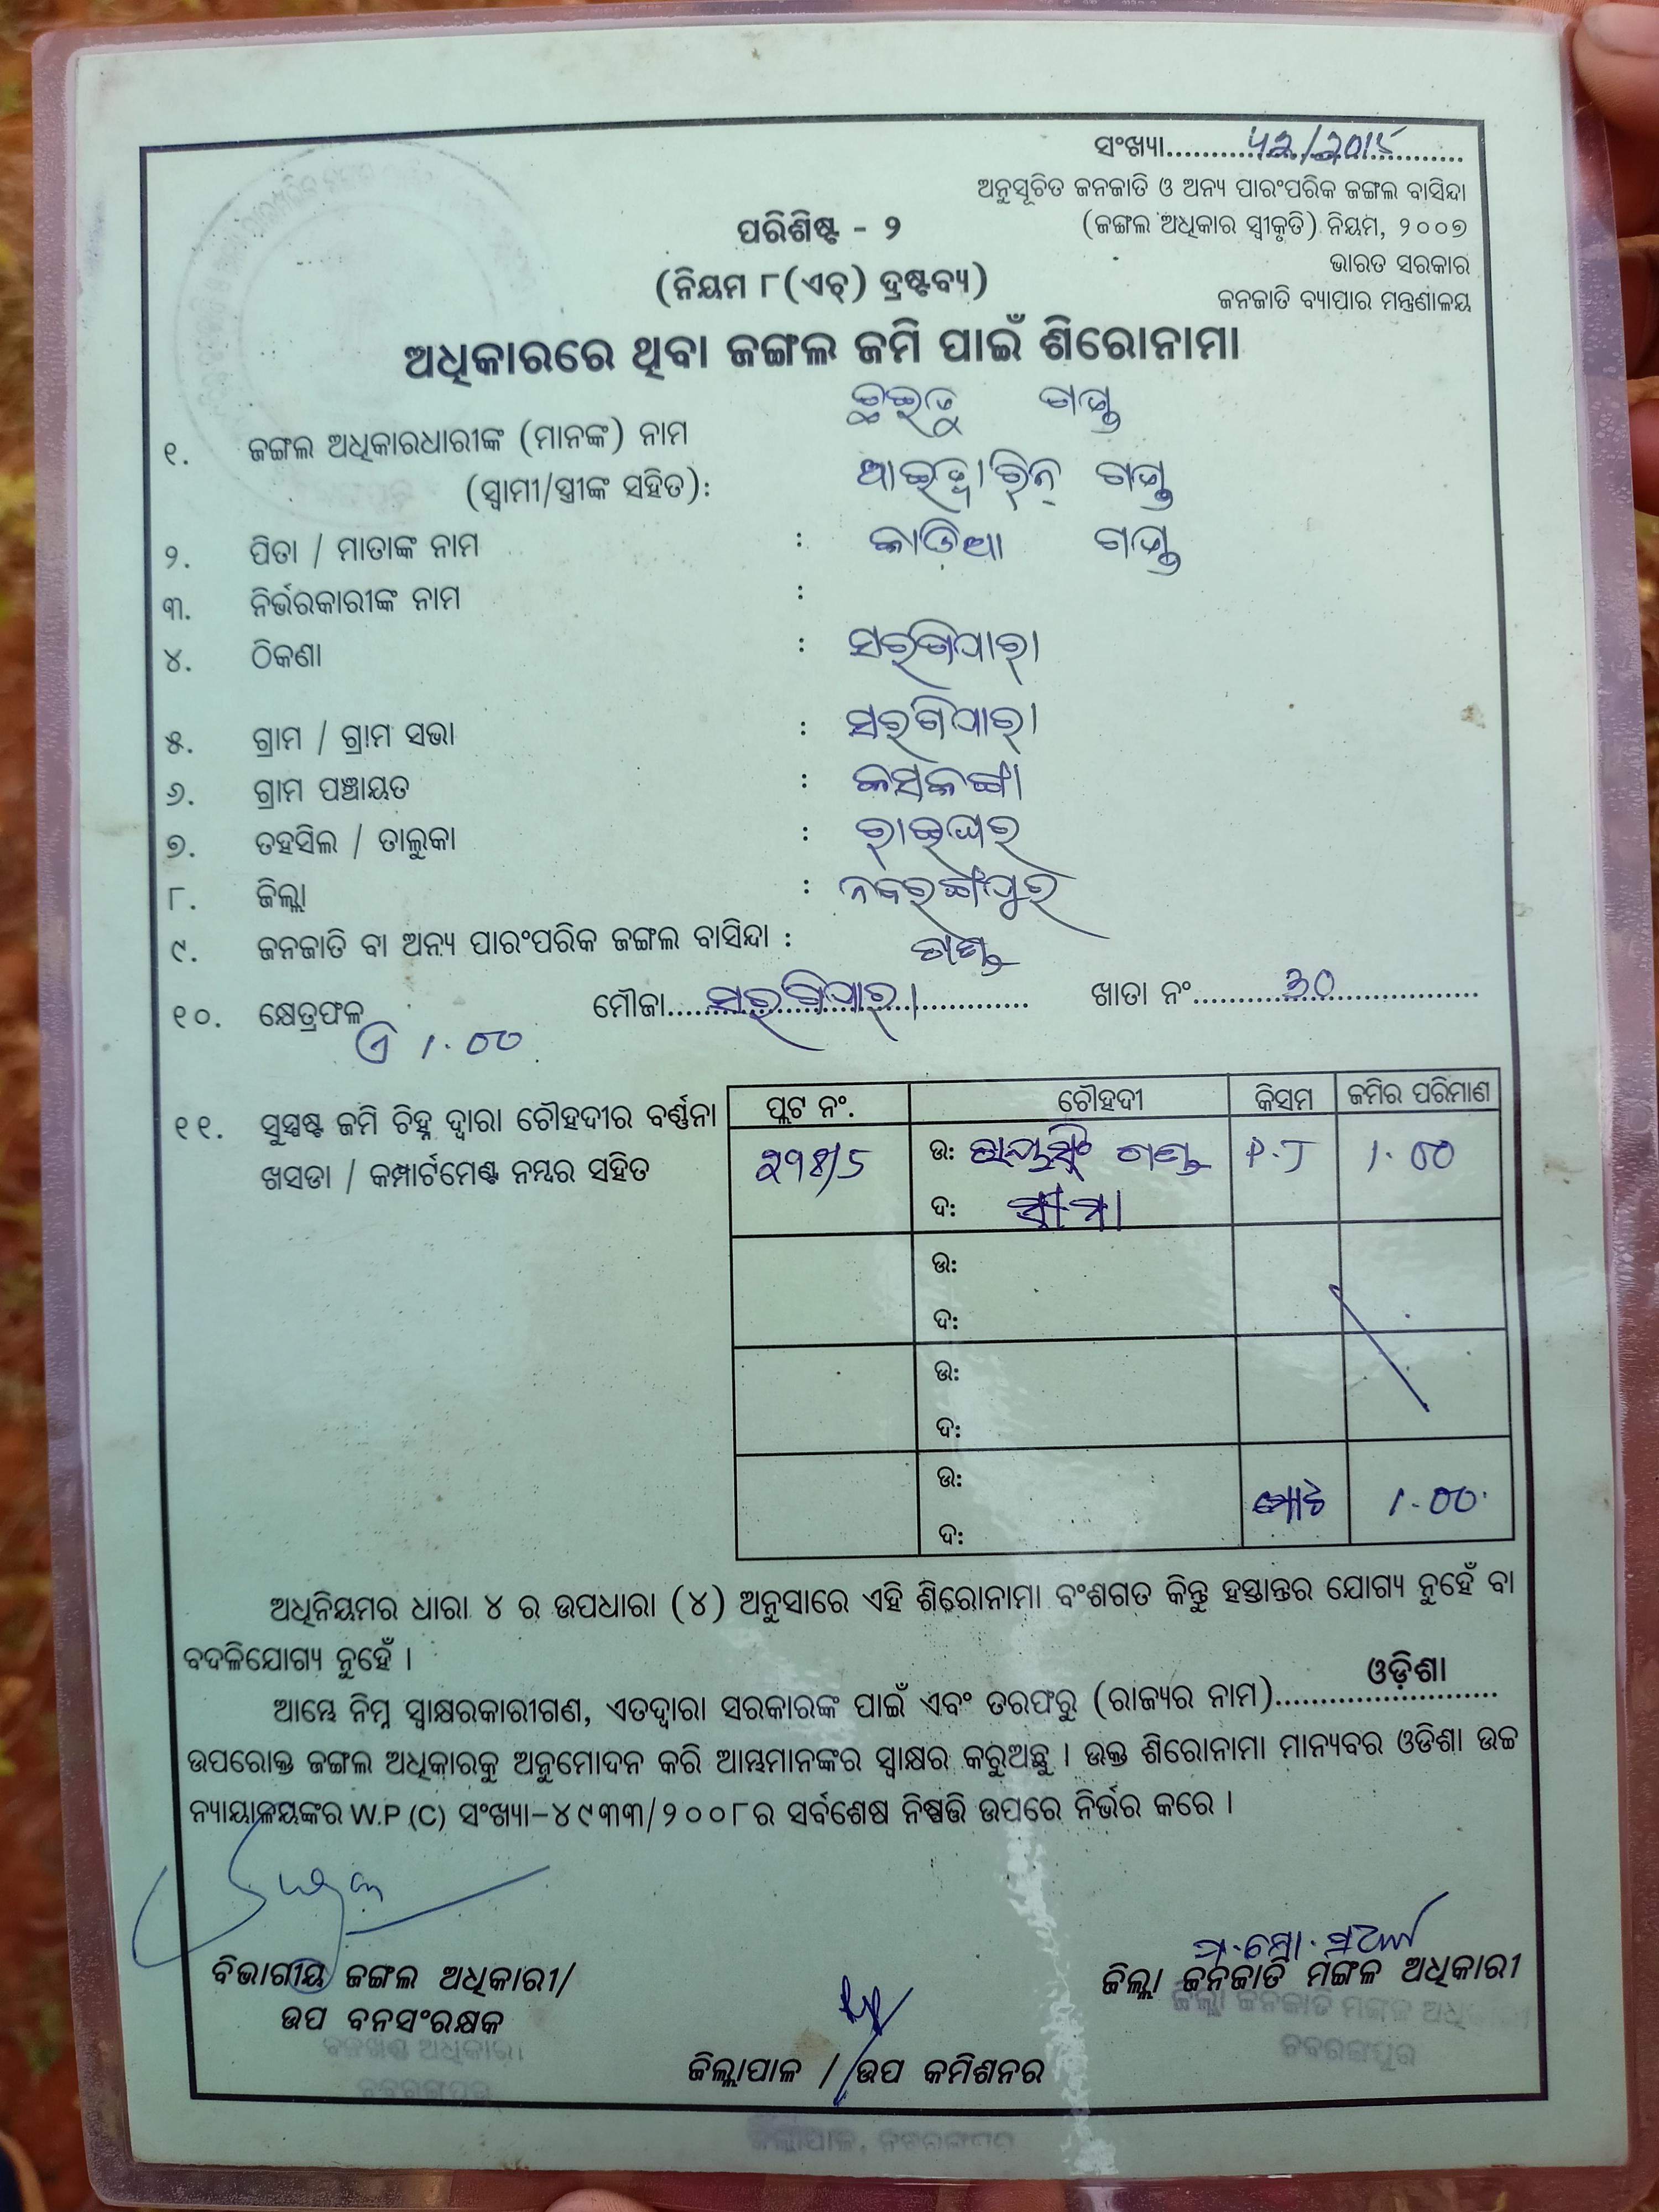 ସଂଖ୍ୟା.....................
ଅନୁସୂଚିତ ଜନଜାତି ଓ ଅନ୍ୟ ପାରଂପରିକ ଜଙ୍ଗଲ ବାସିନ୍ଦା
(ଜଙ୍ଗଲ ଅଧିକାର ସ୍ୱୀକୃତି) ନିୟମ, ୨୦୦୭
ଭାରତ ସରକାର
ଜନଜାତି ବ୍ୟାପାର ମନ୍ତ୍ରଣାଳୟ
ପରିଶିଷ୍ଟ - ୨
(ନିୟମ ୮(ଏଚ୍) ଦ୍ରଷ୍ଟବ୍ୟ)
ଅଧିକାରରେ ଥିବା ଜଙ୍ଗଲ ଜମି ପାଇଁ ଶିରୋନାମା
୧. ଜଙ୍ଗଲ ଅଧିକାରଧାରୀଙ୍କ (ମାନଙ୍କ) ନାମ
(ସ୍ୱାମୀ/ସ୍ତ୍ରୀଙ୍କ ସହିତ):
୨. ପିତା / ମାତାଙ୍କ ନାମ :
୩. ନିର୍ଭରକାରୀଙ୍କ ନାମ :
୪. ଠିକଣା : ସରଗିପାରା
୫. ଗ୍ରାମ / ଗ୍ରାମ ସଭା : ସରଗିପାରା
୬. ଗ୍ରାମ ପଞ୍ଚାୟତ :
୭. ତହସିଲ / ତାଲୁକା : ରାଇଘର
୮. ଜିଲ୍ଲା : ନବରଙ୍ଗପୁର
୯. ଜନଜାତି ବା ଅନ୍ୟ ପାରଂପରିକ ଜଙ୍ଗଲ ବାସିନ୍ଦା : ଗଣ୍ଡ
୧୦. କ୍ଷେତ୍ରଫଳ ମୌଜା....ସରଗିପାରା.... ଖାତା ନଂ....30....
ଏ 1.00
୧୧. ସୁସ୍ପଷ୍ଟ ଜମି ଚିହ୍ନ ଦ୍ୱାରା ଚୌହଦୀର ବର୍ଣ୍ଣନା
ଖସଡା / କମ୍ପାର୍ଟମେଣ୍ଟ ନମ୍ବର ସହିତ
ପ୍ଲଟ ନଂ. ଚୌହଦୀ କିସମ ଜମିର ପରିମାଣ
ଉ: ଗଣ୍ଡ P.J 1.00
ଦ: ସୀମା
ଉ:
ଦ:
ଉ:
ଦ:
ଉ: ମୋଟ 1.00
ଦ:
ଅଧିନିୟମର ଧାରା ୪ ର ଉପଧାରା (୪) ଅନୁସାରେ ଏହି ଶିରୋନାମା ବଂଶଗତ କିନ୍ତୁ ହସ୍ତାନ୍ତର ଯୋଗ୍ୟ ନୁହେଁ ବା
ବଦଳିଯୋଗ୍ୟ ନୁହେଁ ।
ଆମ୍ଭେ ନିମ୍ନ ସ୍ୱାକ୍ଷରକାରୀଗଣ, ଏତଦ୍ୱାରା ସରକାରଙ୍କ ପାଇଁ ଏବଂ ତରଫରୁ (ରାଜ୍ୟର ନାମ)....ଓଡ଼ିଶା....
ଉପରୋକ୍ତ ଜଙ୍ଗଲ ଅଧିକାରକୁ ଅନୁମୋଦନ କରି ଆମ୍ଭମାନଙ୍କର ସ୍ୱାକ୍ଷର କରୁଅଛୁ । ଉକ୍ତ ଶିରୋନାମା ମାନ୍ୟବର ଓଡିଶା ଉଚ୍ଚ
ନ୍ୟାୟାଳୟଙ୍କର W.P.(C) ସଂଖ୍ୟା-୪୯୩୩/୨୦୦୮ର ସର୍ବଶେଷ ନିଷ୍ପତ୍ତି ଉପରେ ନିର୍ଭର କରେ ।
ବିଭାଗୀୟ ଜଙ୍ଗଲ ଅଧିକାରୀ/
ଉପ ବନସଂରକ୍ଷକ
ଜିଲ୍ଲା ଜନଜାତି ମଙ୍ଗଳ ଅଧିକାରୀ
ଜିଲ୍ଲା ଜନଜାତି ମଙ୍ଗଳ ଅଧିକାରୀ
ନବରଙ୍ଗପୁର
ବନଖଣ୍ଡ ଅଧିକାରୀ
ନବରଙ୍ଗପୁର
ଜିଲ୍ଲାପାଳ / ଉପ କମିଶନର
ଜିଲ୍ଲାପାଳ, ନବରଙ୍ଗପୁର